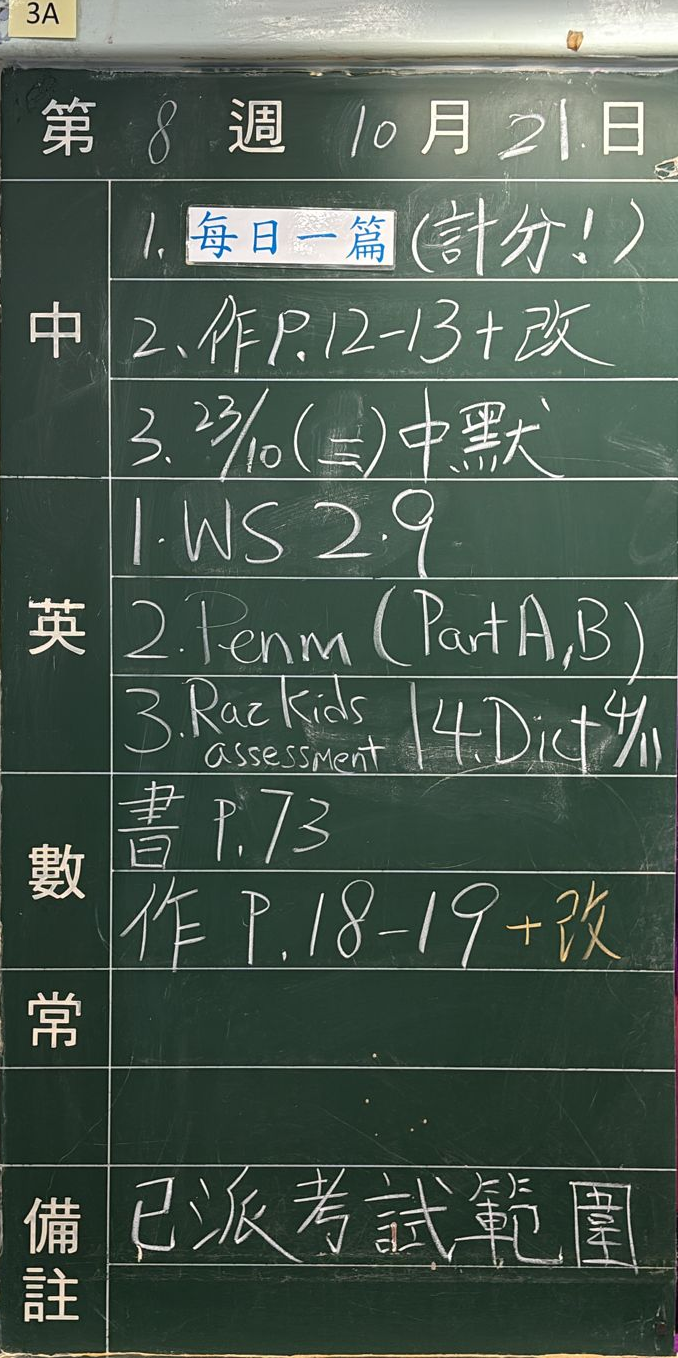 3A
第 8 週 10 月 21. 日
中
1. 每日一篇 (計分!)
2、作P.12-13+改
3. 23/10 (三) 中默
英
1. WS 2.9
2. Penm (Part A,B)
3. Raz Kids assessment | 4. Dict 4/11
數
書 P.73
作 P.18-19 +改
常
備註
已派考試範圍